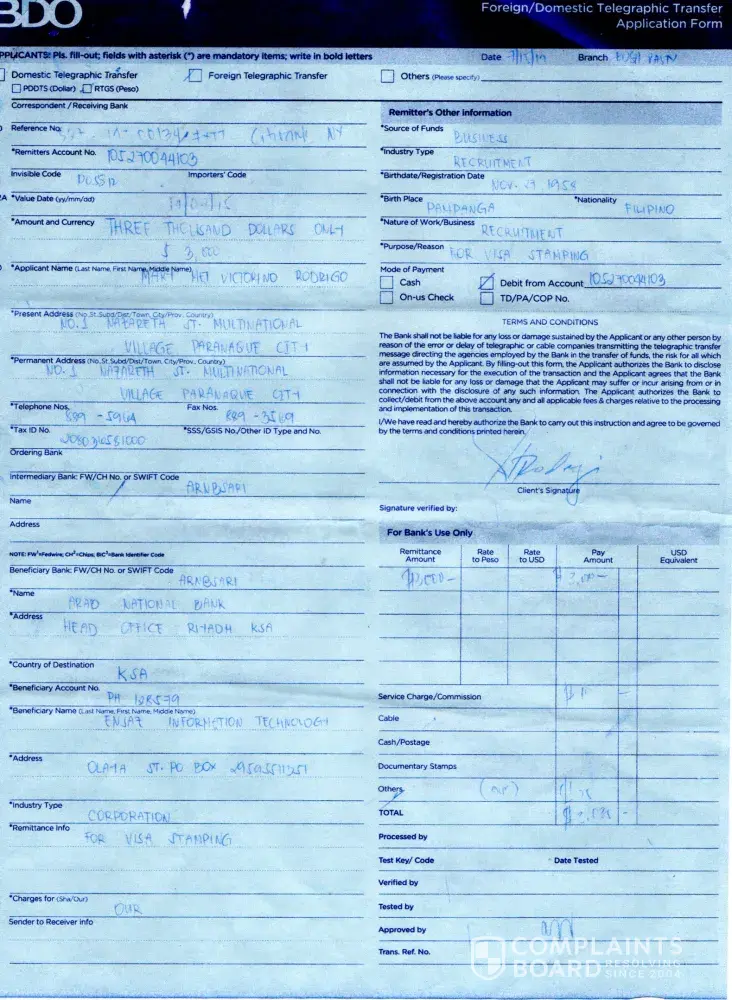 BDO
Foreign/Domestic Telegraphic Transfer
Application Form
APPLICANTS: Pls. fill-out; fields with asterisk (*) are mandatory items; write in bold letters
Date
Branch
Domestic Telegraphic Transfer
Foreign Telegraphic Transfer
Others (Please specify)
PDDTS (Dollar)
RTGS (Peso)
Correspondent / Receiving Bank
Reference No.
NY
*Remitters Account No. 105270044103
Invisible Code
Importers' Code
*Value Date (yy/mm/dd)
*Amount and Currency THREE THOUSAND DOLLARS ONLY
$ 3,000
*Applicant Name (Last Name, First Name, Middle Name)
VICTORINO RODRIGO
*Present Address (No.St.Subd/Dist/Town, City/Prov., Country)
NO. 1 NAZARETH ST. MULTINATIONAL
VILLAGE PARANAQUE CITY
*Permanent Address (No.St.Subd/Dist/Town, City/Prov., Country)
NO. 1 NAZARETH ST. MULTINATIONAL
VILLAGE PARANAQUE CITY
*Telephone Nos.
Fax Nos.
*Tax ID No.
*SSS/GSIS No./Other ID Type and No.
Ordering Bank
Intermediary Bank: FW/CH No. or SWIFT Code
ARNBSARI
Name
Address
NOTE: FW¹=Fedwire; CH²=Chips; BIC³=Bank Identifier Code
Beneficiary Bank: FW/CH No. or SWIFT Code
ARNBSARI
*Name
ARAB NATIONAL BANK
*Address
HEAD OFFICE RIYADH KSA
*Country of Destination
KSA
*Beneficiary Account No.
*Beneficiary Name (Last Name, First Name, Middle Name)
ENJAZ INFORMATION TECHNOLOGY
*Address
OLAYA ST. PO BOX
*Industry Type
CORPORATION
*Remittance Info
FOR VISA STAMPING
*Charges for (Sha/Our)
OUR
Sender to Receiver info
Remitter's Other information
*Source of Funds
BUSINESS
*Industry Type
RECRUITMENT
*Birthdate/Registration Date
*Birth Place
PAMPANGA
*Nationality
FILIPINO
*Nature of Work/Business
RECRUITMENT
*Purpose/Reason
FOR VISA STAMPING
Mode of Payment
Cash
Debit from Account 105270044103
On-us Check
TD/PA/COP No.
TERMS AND CONDITIONS
The Bank shall not be liable for any loss or damage sustained by the Applicant or any other person by
reason of the error or delay of telegraphic or cable companies transmitting the telegraphic transfer
message directing the agencies employed by the Bank in the transfer of funds, the risk for all which
are assumed by the Applicant. By filling-out this form, the Applicant authorizes the Bank to disclose
information necessary for the execution of the transaction and the Applicant agrees that the Bank
shall not be liable for any loss or damage that the Applicant may suffer or incur arising from or in
connection with the disclosure of any such information. The Applicant authorizes the Bank to
collect/debit from the above account any and all applicable fees & charges relative to the processing
and implementation of this transaction.
I/We have read and hereby authorize the Bank to carry out this instruction and agree to be governed
by the terms and conditions printed herein.
Client's Signature
Signature verified by:
For Bank's Use Only
Remittance Amount
Rate to Peso
Rate to USD
Pay Amount
USD Equivalent
Service Charge/Commission
Cable
Cash/Postage
Documentary Stamps
Others
TOTAL
Processed by
Test Key/ Code
Date Tested
Verified by
Tested by
Approved by
Trans. Ref. No.
COMPLAINTS
BOARD RESOLVING
SINCE 2004